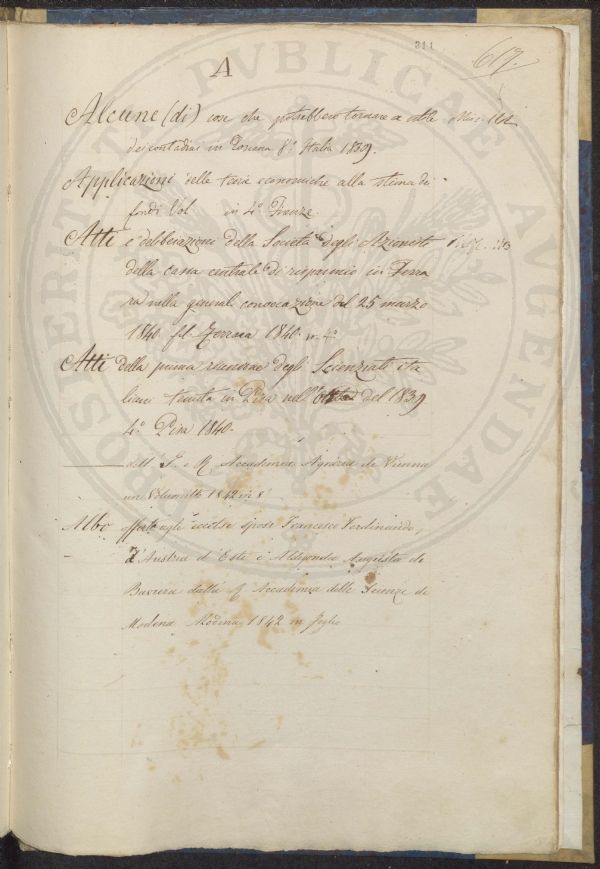 311
617.
A
Alcune (di) cose che potrebbero tornare a utile Misc.
de contadini in Toscana 8.° Italia 1839.
Applicazioni delle teorie economiche alla stima dei
fondi Vol in 4.° Firenze
Atti e deliberazioni della Società degli Azionisti
della cassa centrale di risparmio in Ferra
ra nella generale convocazione del 25 marzo
1840 fol. Ferrara 1840. in 4.°
Atti della prima riunione degli Scienziati ita
liani tenuta in Pisa nell' del 1839
4.° Pisa 1840.
dell' I. e R. Accademia Agraria di Vienna
un 1842 in 8
Albo offerto agli eccelsi sposi Francesco Ferdinando
d'Austria d'Este e Aldgonda Augusta di
Baviera dalla R Accademia delle Scienze di
Modena Modena 1842 in foglio
PROSPERITATI PVBLICAE AVGENDAE